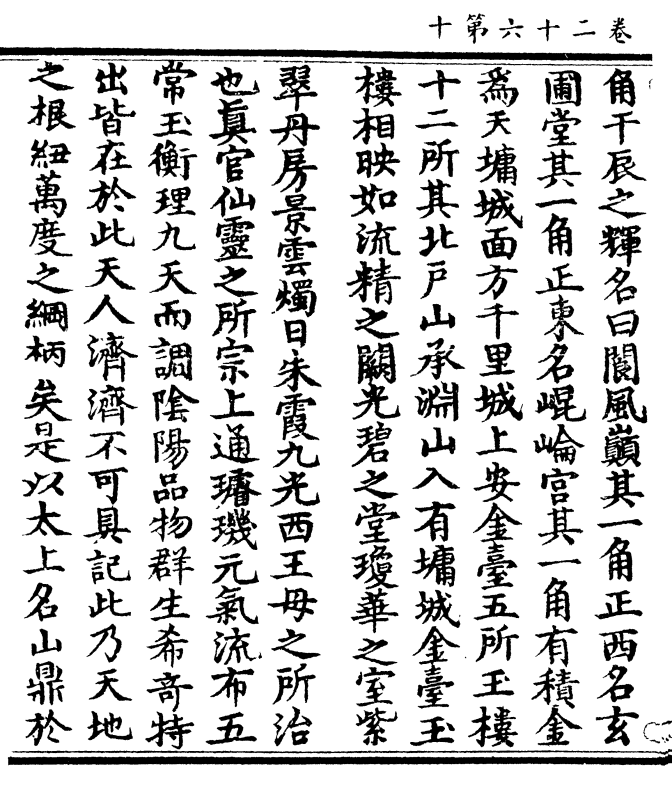 卷二十六第十
角干辰之輝名曰閬風巔其一角正西名玄
圃堂其一角正東名崐崘宮其一角有積金
爲天墉城面方千里城上安金臺五所玉樓
十二所其北戸山承淵山入有墉城金臺玉
樓相映如流精之闕光碧之堂瓊華之室紫
翠丹房景雲燭日朱霞九光西王母之所治
也真官仙靈之所宗上通璿璣元氣流布五
常玉衡理九天而調陰陽品物群生希竒特
出皆在於此天人濟濟不可具記此乃天地
之根紐萬度之綱柄矣是以太上名山鼎於